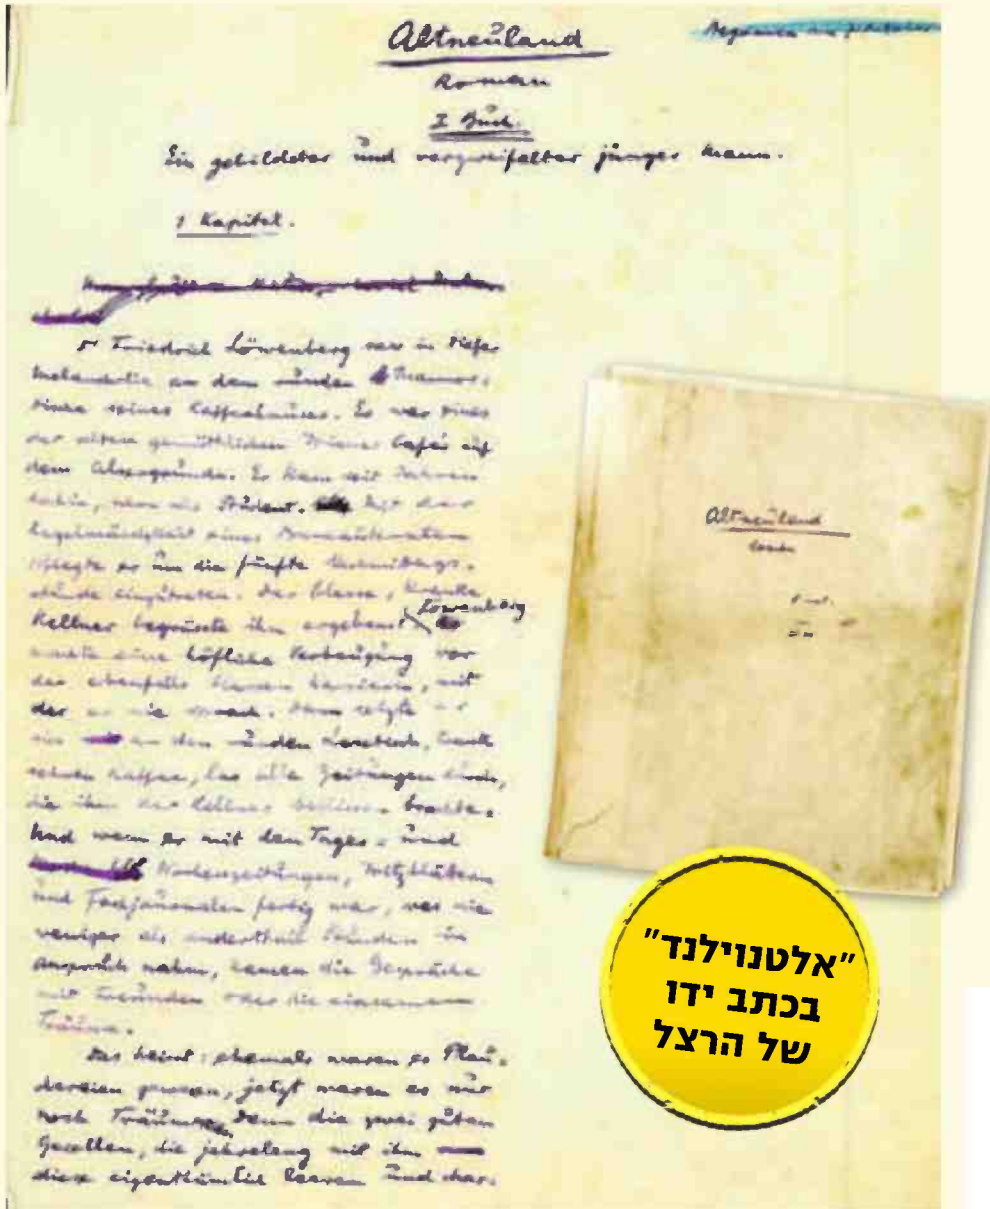 Altneuland
Roman
I Buch.
Ein gebildeter und verzweifelter junger Mann.
1 Kapitel.
Dr Friedrich Löwenberg sass in tiefer
Melancholie an dem runden Marmor-
tische seines Kaffeehauses. Es war eines
der alten gemüthlichen Wiener Cafés auf
dem Alsergrunde. Er kam seit Jahren
dahin, schon als Student. Mit der
Regelmässigkeit eines Bureaukraten
pflegte er um die fünfte Nachmittags-
stunde einzutreten. Der blasse, kranke
Kellner begrüsste ihn ergebenst. Löwenberg
machte eine höfliche Verbeugung vor
der ebenfalls blassen Kassierin, mit
der er nie sprach. Dann setzte er
sich an den runden Lesetisch, trank
seinen Kaffee, las alle Zeitungen durch,
die ihm der Kellner beflissen brachte.
Und wenn er mit den Tages- und
Wochenzeitungen, Witzblättern
und Fachjournalen fertig war, was nie
weniger als anderthalb Stunden in
Anspruch nahm, kamen die Gespräche
mit Freunden oder die einsamen
Träume.
Das heisst: ehemals waren es Plau-
dereien gewesen, jetzt waren es nur
noch Träume, denn die zwei guten
Gesellen, die jahrelang mit ihm
diese eigenthümlich leeren und char-
Altneuland
Roman
"אלטנוילנד"
בכתב ידו
של הרצל